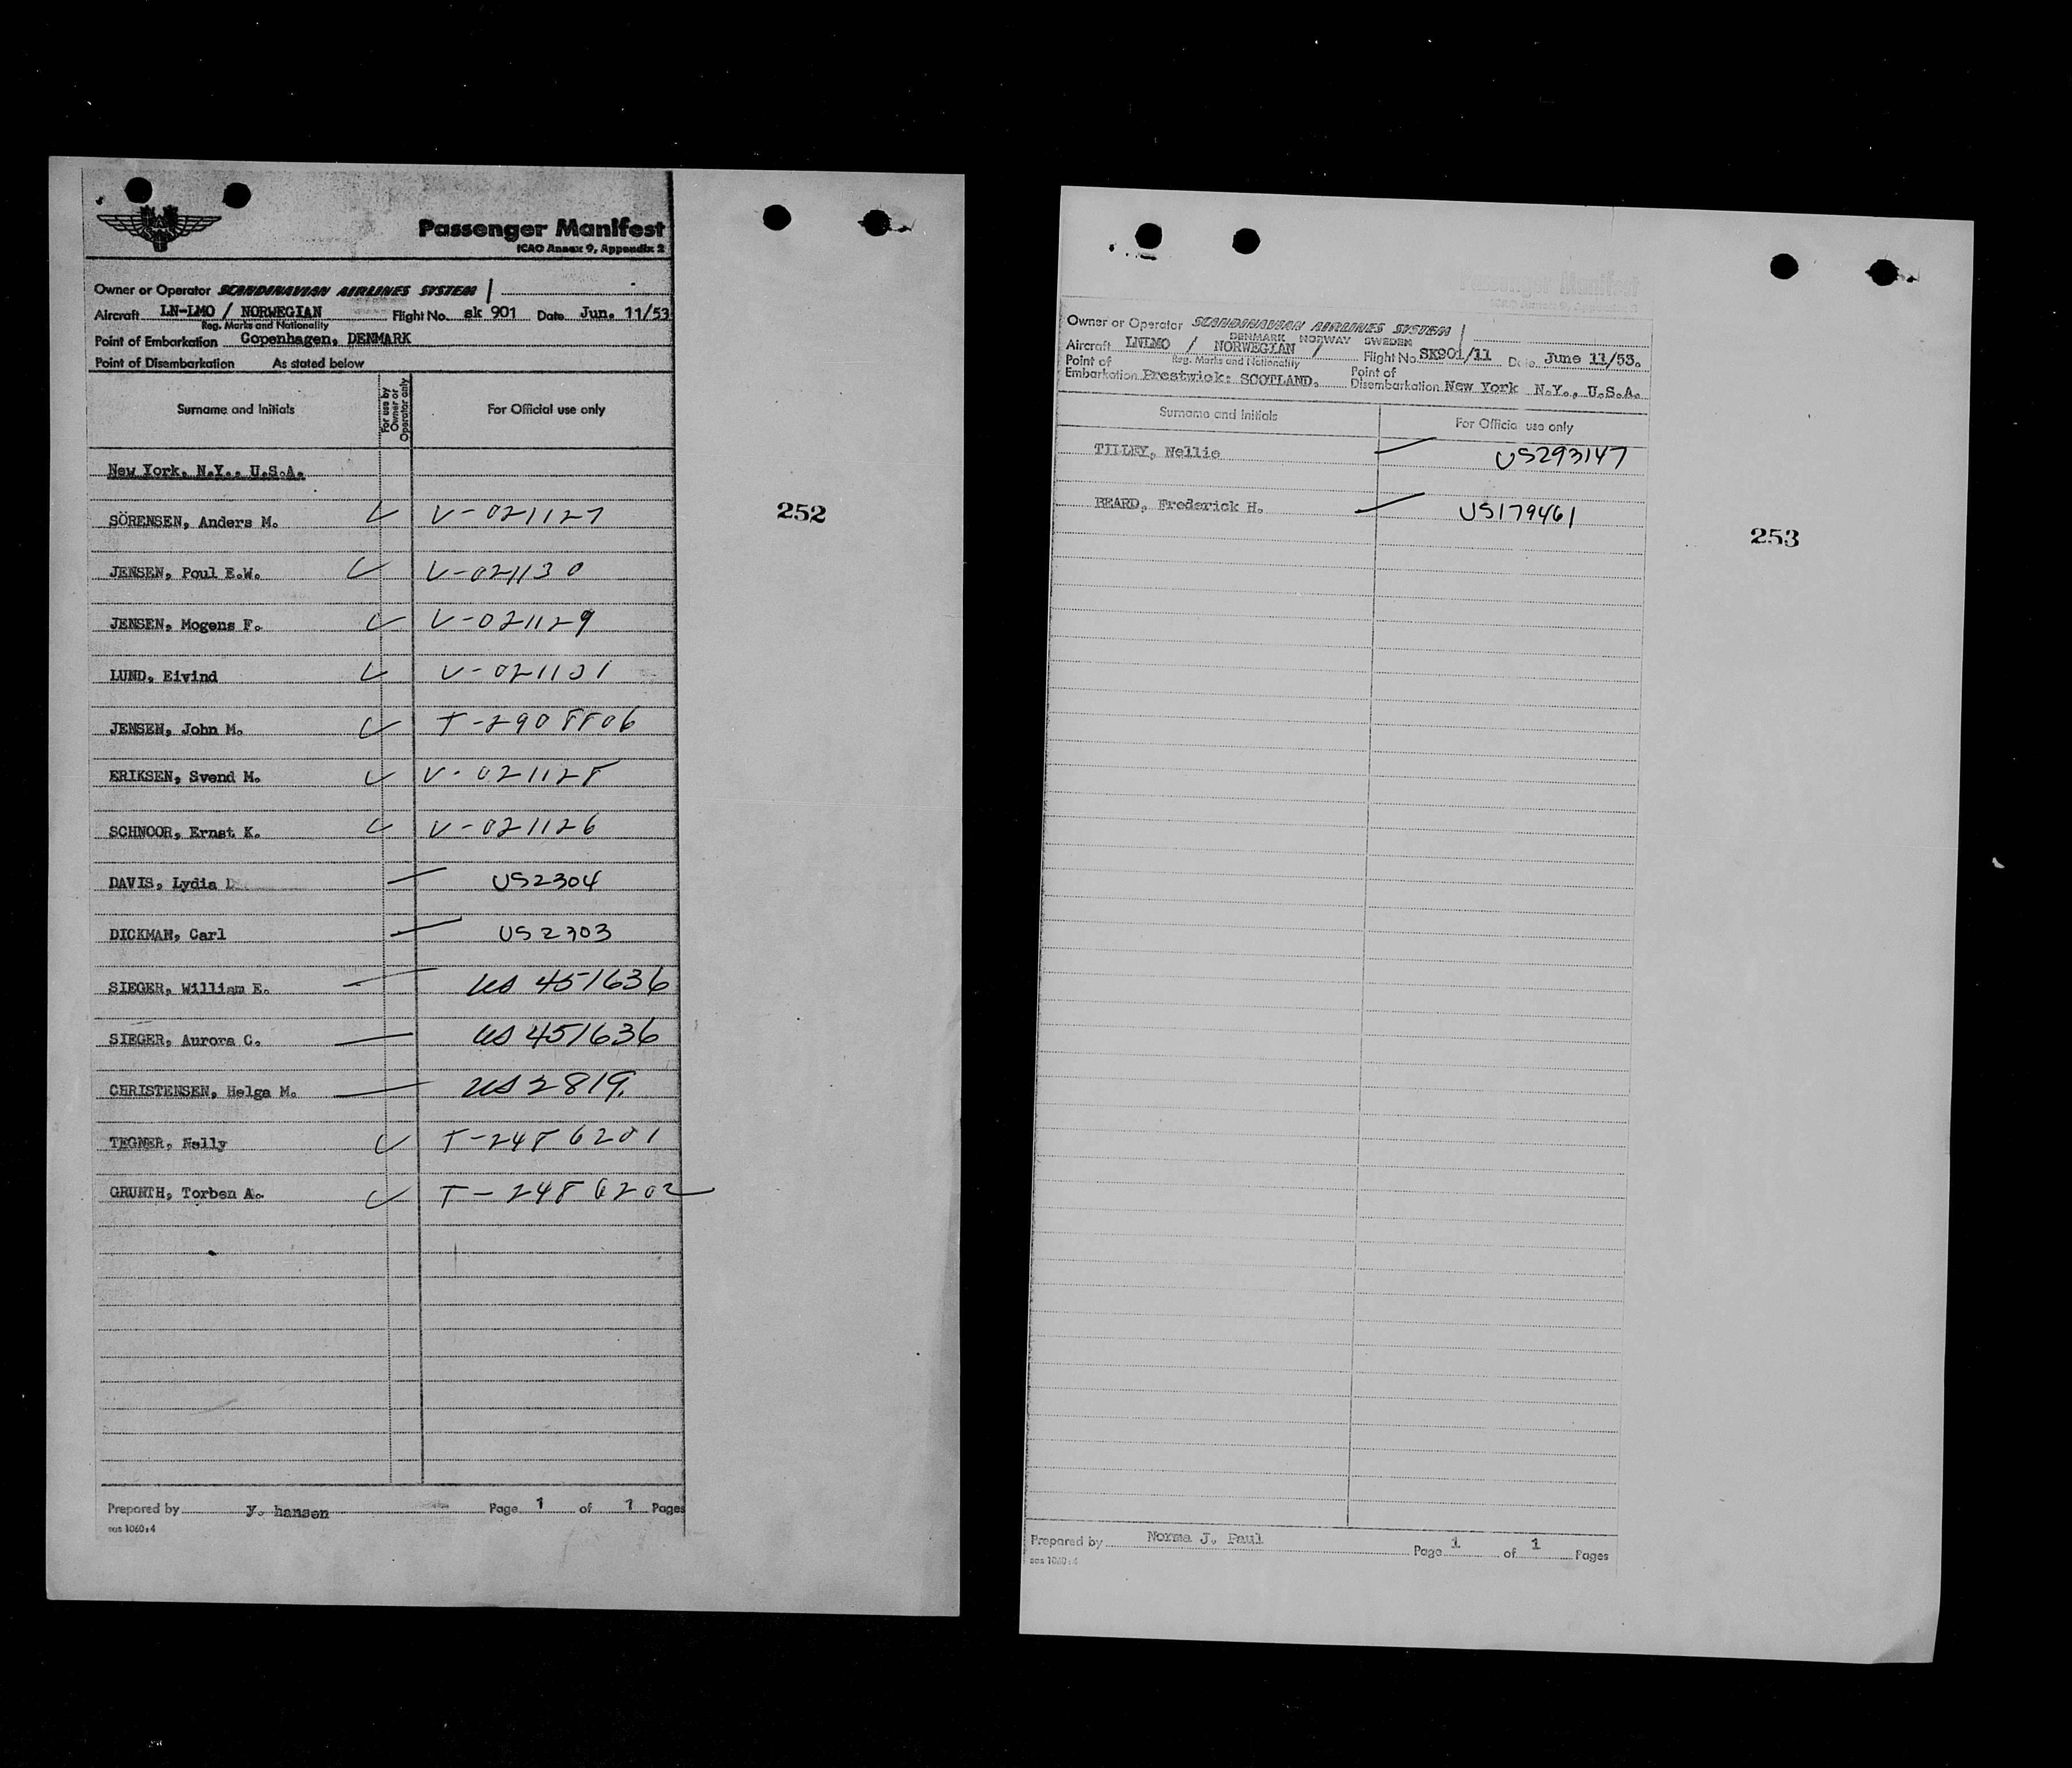 Passenger Manifest
ICAO Annex 9, Appendix 2
Owner or Operator SCANDINAVIAN AIRLINES SYSTEM
Aircraft LN-LMO / NORWEGIAN Flight No. sk 901 Date Jun. 11/53
Reg. Marks and Nationality
Point of Embarkation Copenhagen, DENMARK
Point of Disembarkation As stated below
Surname and Initials For use by Owner or Operator only For Official use only
New York, N.Y., U.S.A.
SÖRENSEN, Anders M. V-021127
252
JENSEN, Poul E.W. V-021130
JENSEN, Mogens F. V-021129
LUND, Eivind V-021131
JENSEN, John M. T-2908806
ERIKSEN, Svend M. V-021128
SCHNOOR, Ernst K. V-021126
DAVIS, Lydia D US2304
DICKMAN, Carl US2303
SIEGER, William E. US 451636
SIEGER, Aurora C. US 451636
CHRISTENSEN, Helga M. US 2819.
TEGNER, Nelly T-2486201
GRUNTH, Torben A. T-2486202
Prepared by y. hansen Page 1 of 1 Pages
sas 1060:4
Passenger Manifest
Owner or Operator SCANDINAVIAN AIRLINES SYSTEM
DENMARK NORWAY SWEDEN
Aircraft LNLMO / NORWEGIAN / Flight No. SK901/11 Date June 11/53.
Reg. Marks and Nationality
Point of Embarkation Prestwick: SCOTLAND. Point of Disembarkation New York N.Y., U.S.A.
Surname and Initials For Official use only
TILLEY, Nellie US293147
BEARD, Frederick H. US179461
253
Prepared by Norma J. Paul Page 1 of 1 Pages
sas 1060:4